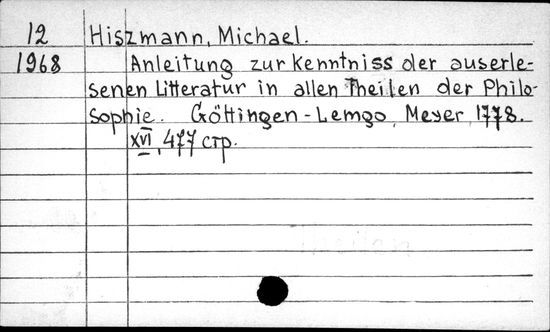 12 Hiszmann, Michael.
1968 Anleitung zur Kenntniss der auserle-
senen Litteratur in allen Theilen der Philo-
sophie. Göttingen-Lemgo, Meyer, 1778.
XVI, 477 стр.